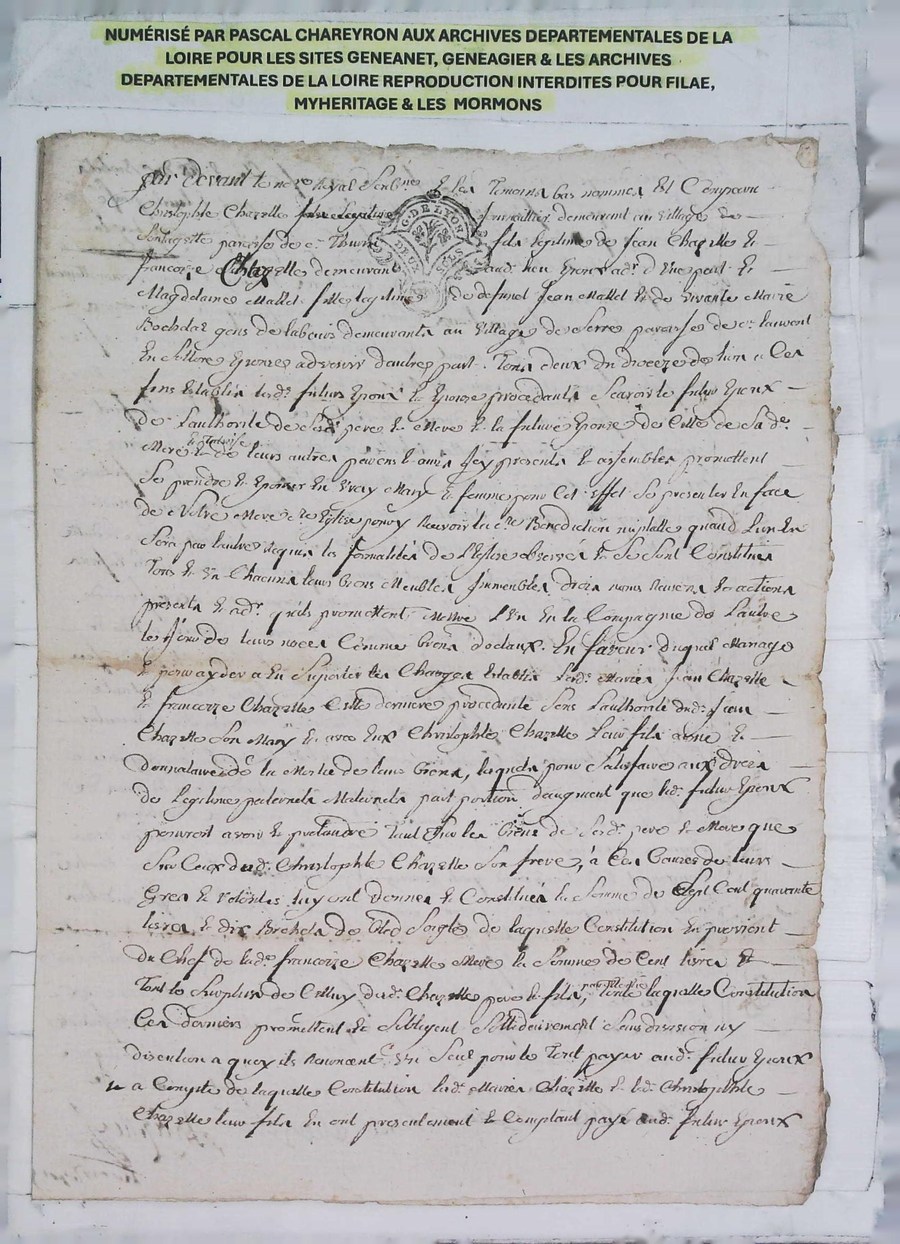 NUMÉRISÉ PAR PASCAL CHAREYRON AUX ARCHIVES DEPARTEMENTALES DE LA
LOIRE POUR LES SITES GENEANET, GENEAGIER & LES ARCHIVES
DEPARTEMENTALES DE LA LOIRE REPRODUCTION INTERDITES POUR FILAE,
MYHERITAGE & LES MORMONS
par devant le nore Royal & les Temoins bas nommes Et Comparu
Christophle Chazelle demeurant au village de
G. DE LYON
DEUX
parroisse de fils legitime de Jean Chazelle &
francoize Chazelle demeurant aud. lieu Epoux ad. d'Une part &
Magdelaine Mallet fille legitime de defunct Jean Mallet & de vivante Marie
gens de labeurs demeurants au village de Serre paroisse de st laurent
Epouze advenir d'autre part. Tous deux du dioceze de lion a Ces
fins Establis lesds. futurs Epoux & Epouze procedants Scavoir le futur Epoux
de L'authorité de Sesd. pere & Mere & la future Epouze de Celle de Sa de.
Mere & de leurs autres parens & amis Icy presents & assembles promettent
Se prendre & Epouzer En vray Mary & femme pour Cet Effet Se presenter En face
de Notre Mere Ste Eglise pour y Recevoir la ste Benediction nuptialle quand L'un En
Sera par l'autre Requis les formalités de L'Eglise observées & Se Sont Constitués
Tous & Un Chacuns leurs biens Meubles Immeubles droits noms Raisons & actions
presents & ad. qu'ils promettent Mettre L'Un En la Compagnie de L'autre
le Jour de leurs noces Comme biens dotaux. En faveur duquel Mariage
& pour ayder a En Suporter les Charges Establis Jean Chazelle
& francoize Chazelle Cette derniere procedante Sous L'authorité dud. Jean
Chazelle Son Mary & avec Eux Christophle Chazelle leur fils &
donnataire de la Moitié de leurs biens, lesquels pour Satisfaire aux droits
de Legitime paternels Maternels part portion d'augment que led. futur Epoux
pourroit avoir & pretandre Tant Sur les biens de Sesd. pere & Mere que
Sur Ceux dud. Christophle Chazelle Son frere, a Ces Causes de leurs
Gres & volontés luy ont donnés & Constitués la Somme de Sept Cent quarante
livres & dix Bichets de bled Seigle de laquelle Constitution En provient
du Chef de lade. francoize Chazelle Mere la Somme de Cent livres &
Tout le Surplus de Celluy dud. Chazelle pere & fils, Toute laquelle Constitution
Ces derniers promettent & Sobligent Sollidairement Sans division ny
discution a quoy ils Renoncent Un Seul pour le Tout payer aud. futur Epoux
& a Compte de laquelle Constitution Chazelle & led. Christophle
Chazelle leur fils En ont presentement & Comptant payé aud. futur Epoux